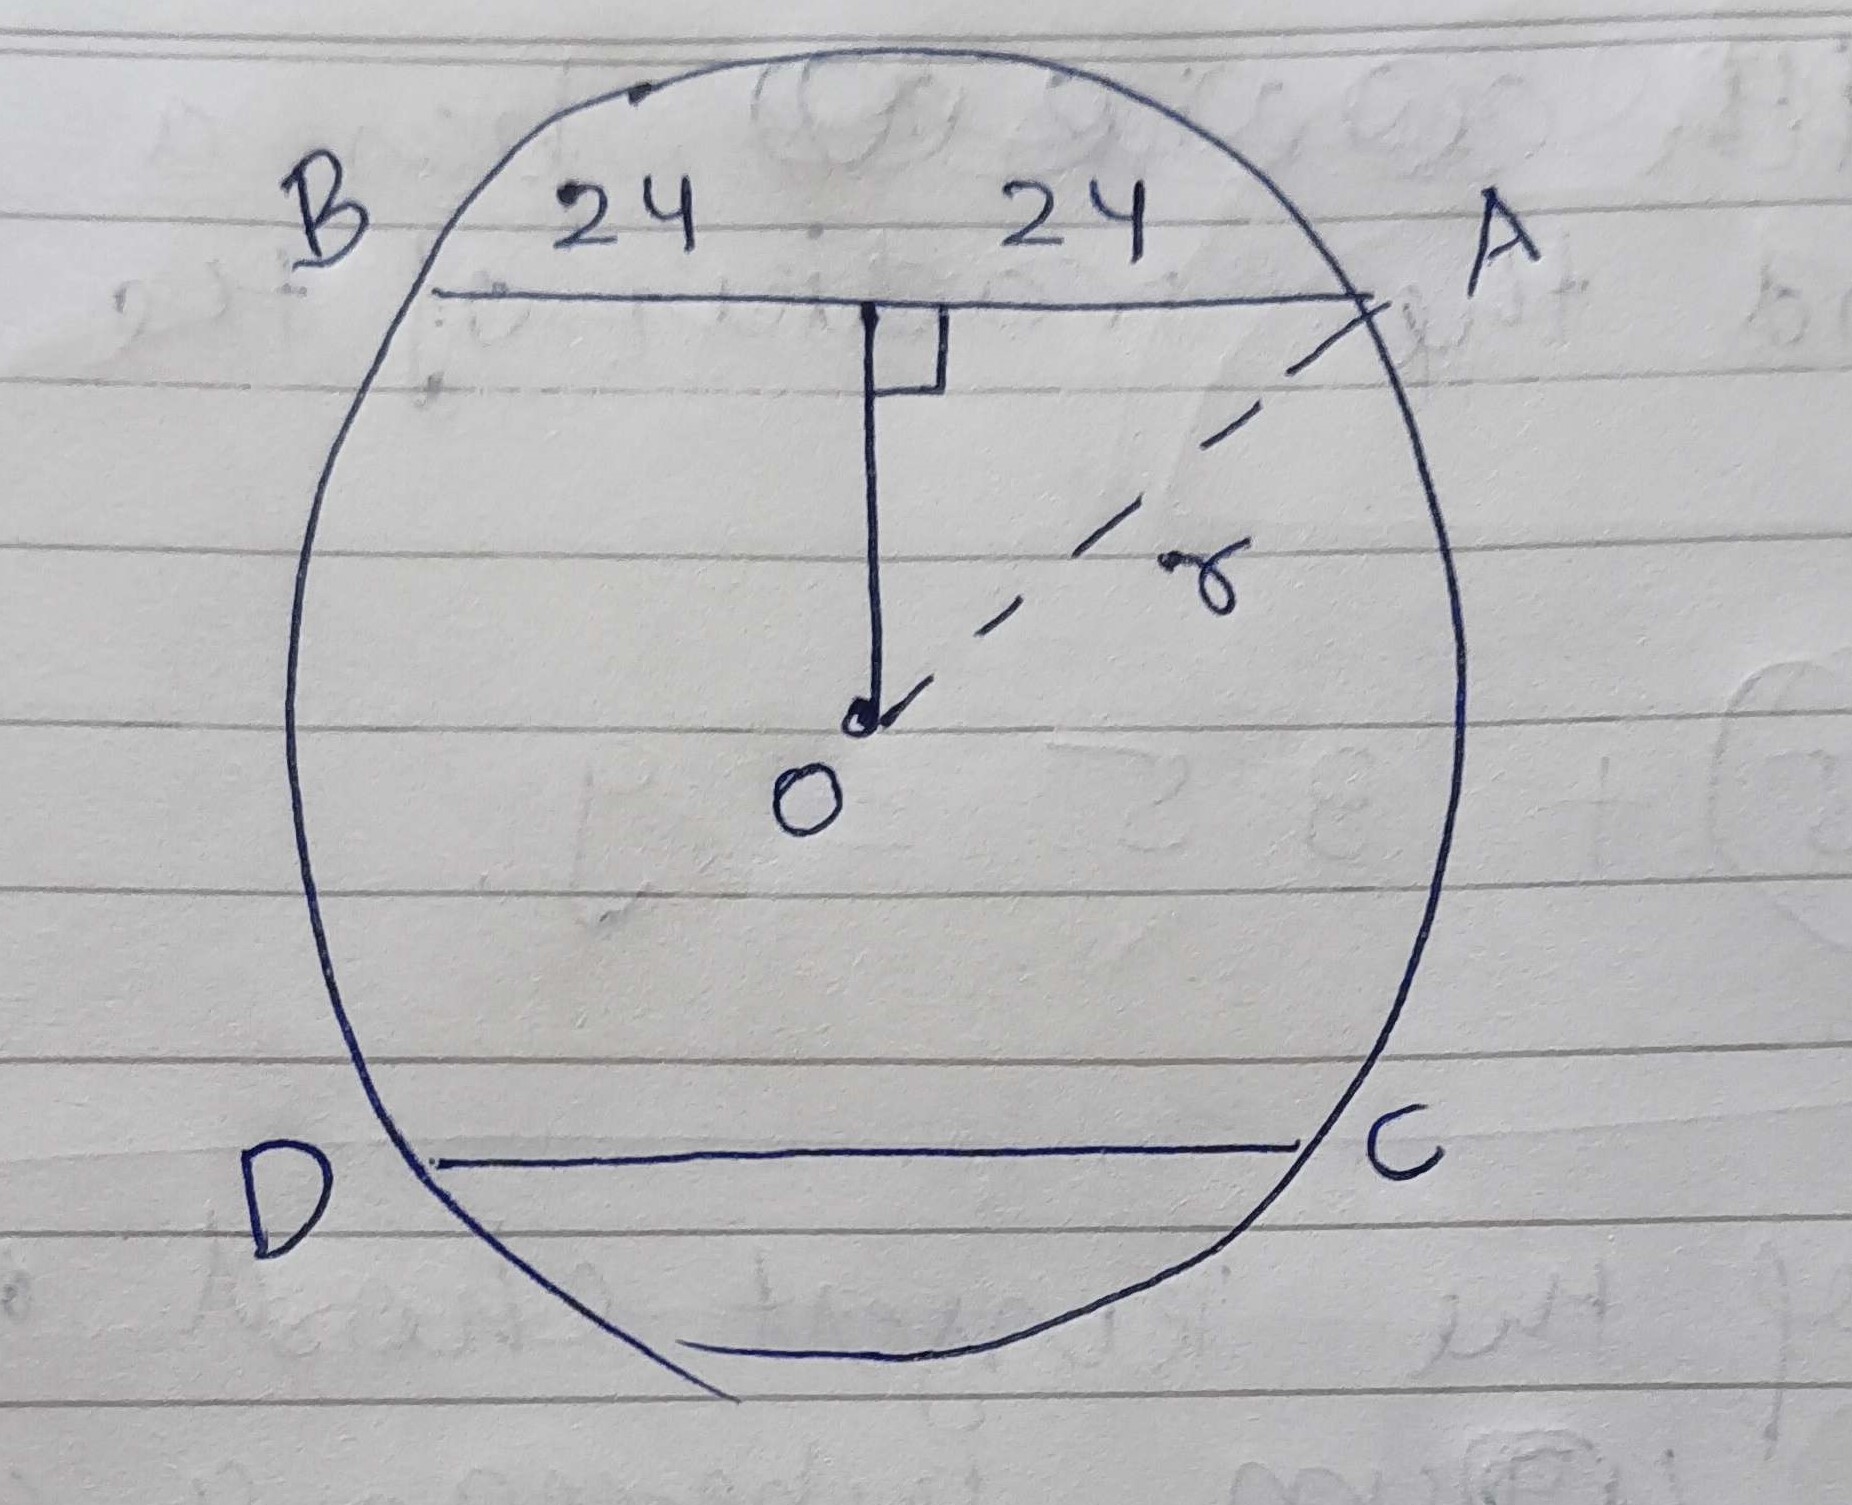 B 24 24 A
r
O
D C